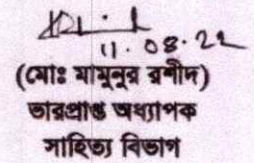 11.08.22
(মোঃ মামুনুর রশীদ)
ভারপ্রাপ্ত অধ্যাপক
সাহিত্য বিভাগ